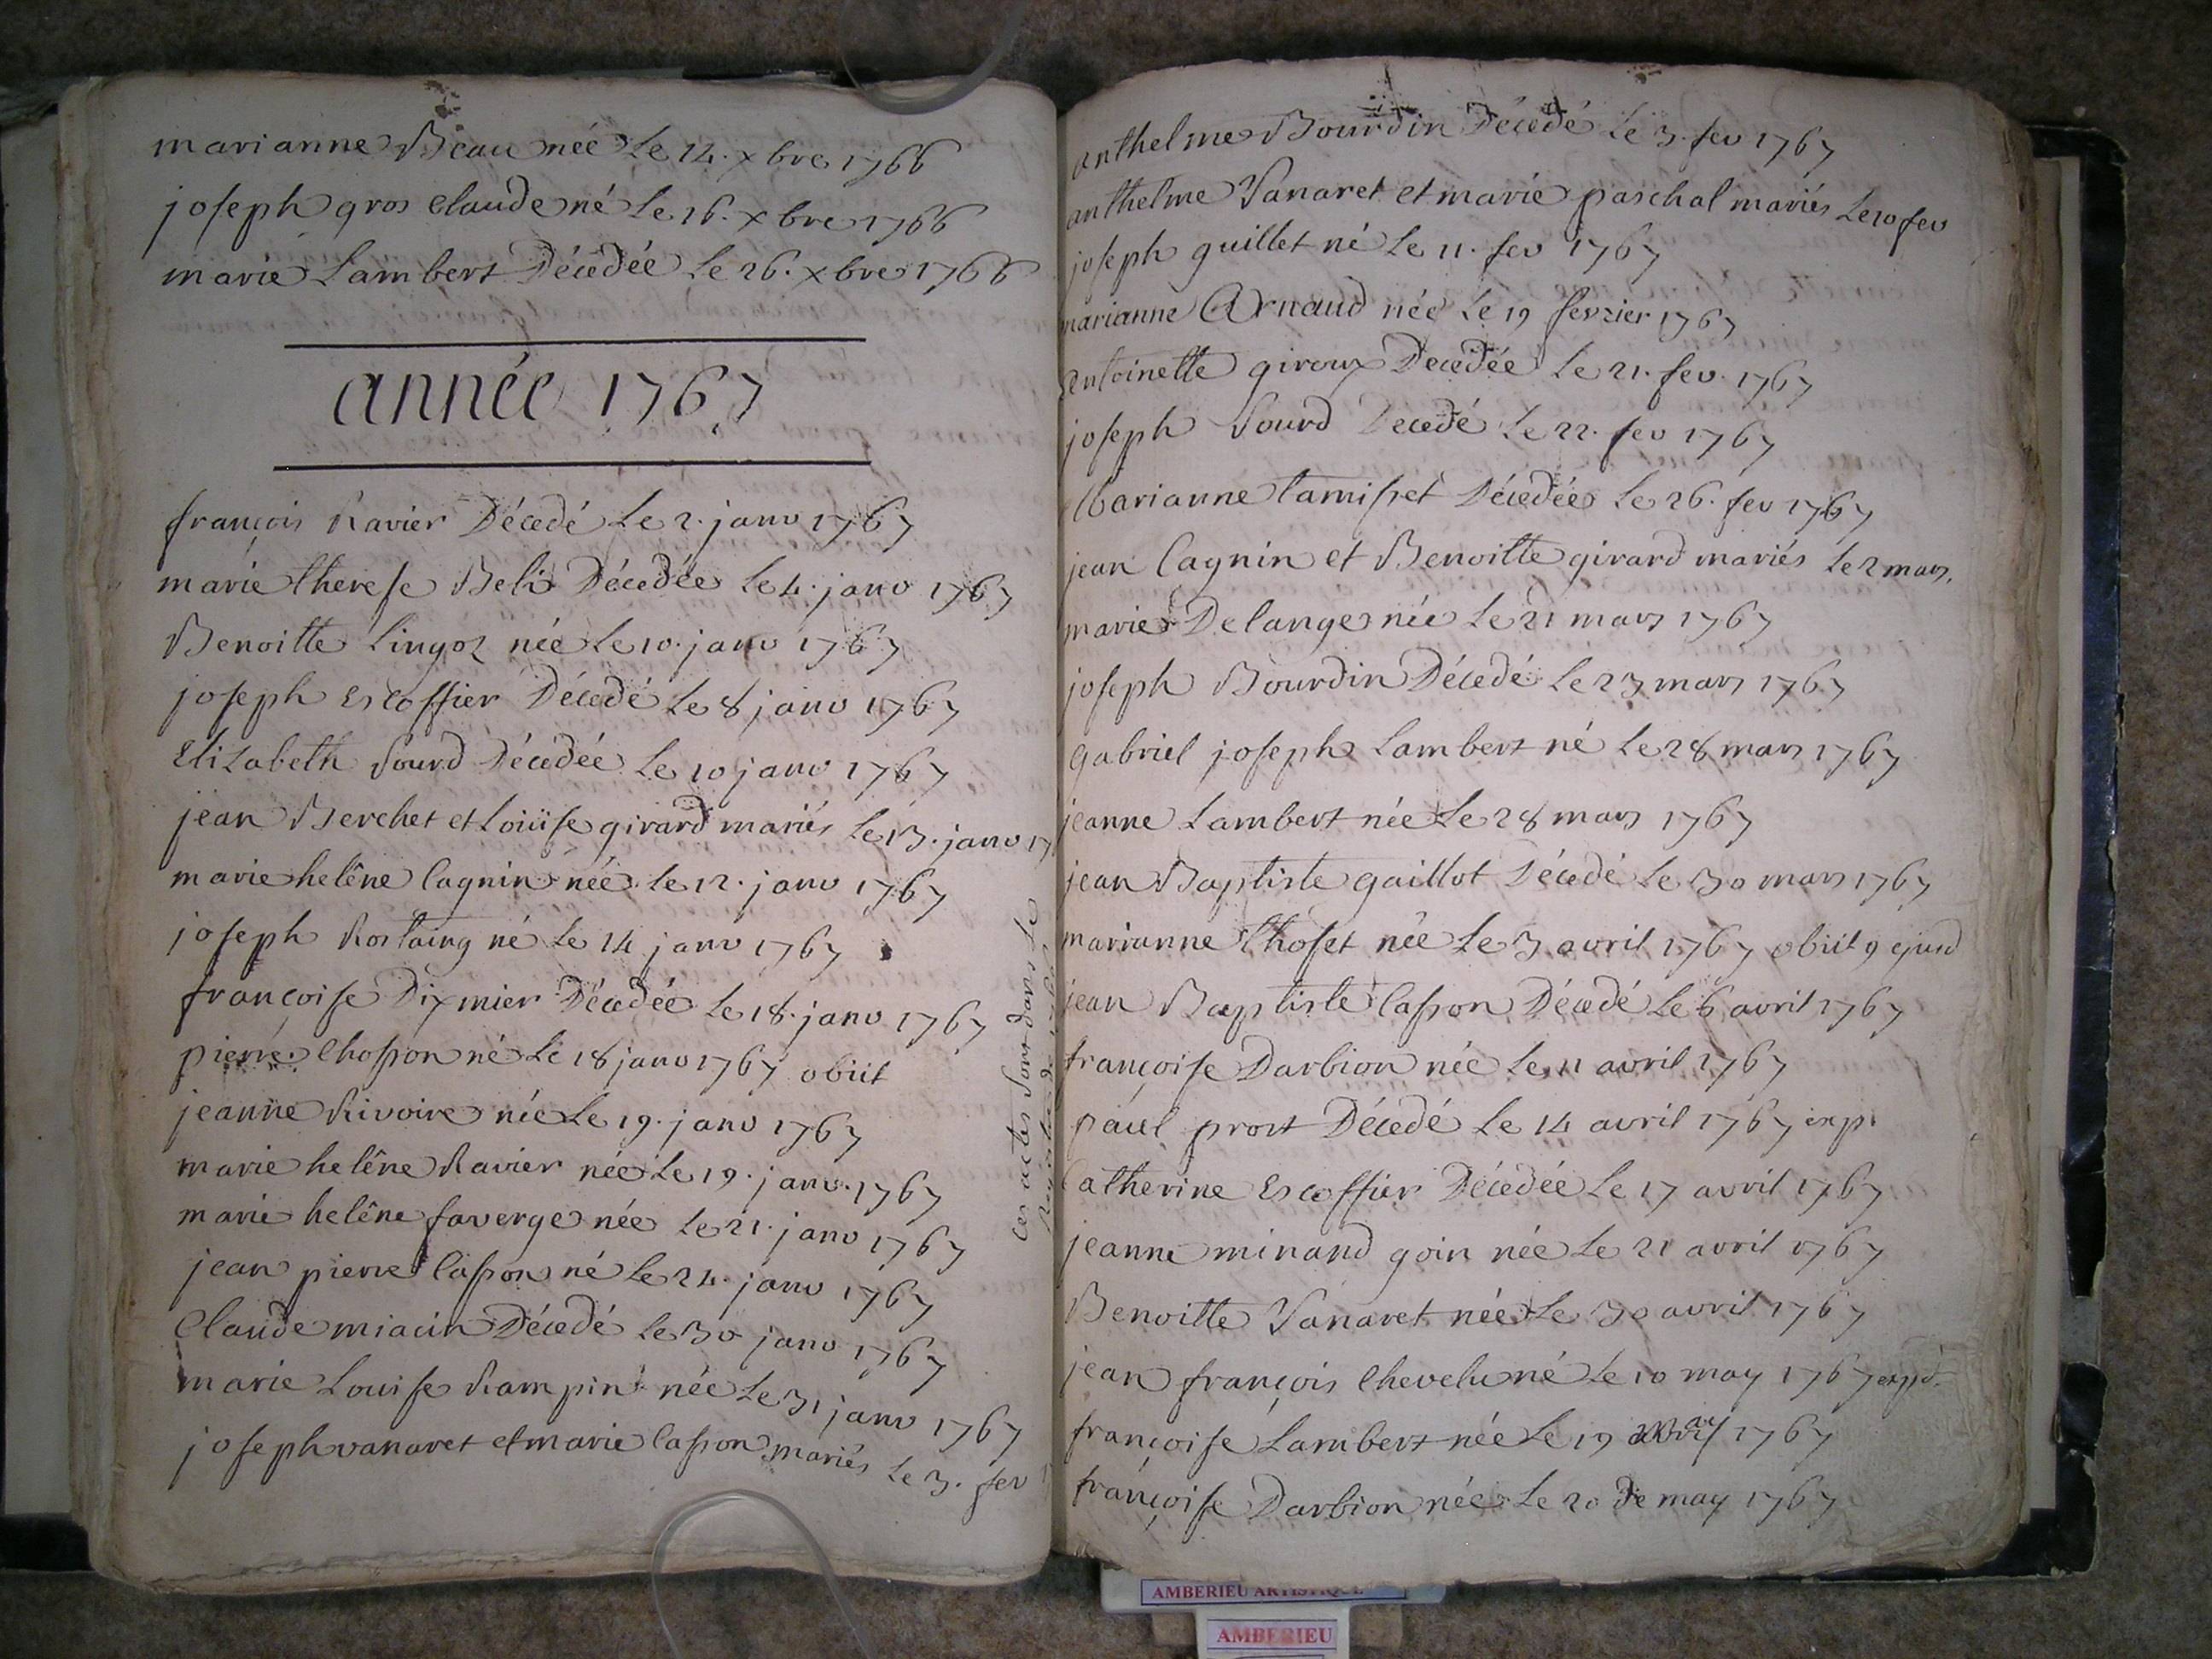 marianne Beau née Le 14. xbre 1766
joseph gros Claude né Le 16. xbre 1766
marie Lambert Décédée Le 26. xbre 1766
année 1767
françois Ravier Décedé Le 2. janv 1767
marie therese Beli Décedée Le 4. janv 1767
Benoitte Lingoz née Le 10. janv 1767
joseph Escoffier Décedé Le 8 janv 1767
Elizabeth Sourd Décedée Le 10 janv 1767
jean Berchet et Loüise girard mariés Le 13. janv 17
marie helêne Cagnin née Le 12. janv 1767
joseph Rostaing né Le 14 janv 1767
françoise Dixmier Décedée Le 18. janv 1767
pierre Chosson né Le 18 janv 1767 obiit
jeanne Rivoire née Le 19. janv 1767
marie helêne Ravier née Le 19. janv. 1767
marie helêne faverge née Le 21. janv 1767
jean pierre Casson né Le 24. janv 1767
Claude miacin Décedé Le 30 janv 1767
marie Louise Rampin née Le 31 janv 1767
joseph vanaret et marie Casson mariés Le 3. fev
Ces actes sont dans le
Registre de
anthelme Bourdin Décedé Le 3. fev 1767
anthelme Vanaret et marie paschal mariés Le 10 fev
joseph guillet né Le 11. fev 1767
marianne Arnaud née Le 19 fevrier 1767
antoinette giroux Decedée Le 21. fev. 1767
joseph Sourd Decedé Le 22. fev 1767
Marianne tamisset Décedée Le 26. fev 1767
jean Cagnin et Benoitte girard mariés Le 2 mars.
marie Delange née Le 21 mars 1767
joseph Bourdin Décedé Le 23 mars 1767
gabriel joseph Lambert né Le 28 mars 1767
jeanne Lambert née Le 28 mars 1767
jean Baptiste gaillot Décedé Le 30 mars 1767
marianne thoset née Le 3 avril 1767 obiit 9 ejusd
jean Baptiste Casson Décedé Le 6 avril 1767
françoise Darbion née Le 11 avril 1767
paul prost Décedé Le 14 avril 1767 exp
Catherine Escoffier Décedée Le 17 avril 1767
jeanne minand goin née Le 21 avril 1767
Benoitte Vanaret née Le 30 avril 1767
jean françois Chevelu né Le 10 may 1767 expd.
françoise Lambert née Le 19 may 1767
françoise Darbion née Le 20 de may 1767
AMBERIEU ARTISTIQUE
AMBERIEU